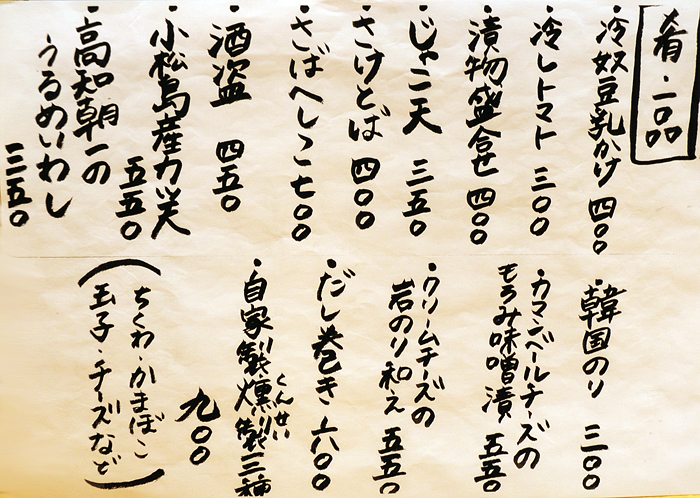 肴・一品
・冷奴豆乳かけ 四〇〇
・冷しトマト 三〇〇
・漬物盛合せ 四〇〇
・じゃこ天 三五〇
・さけとば 四〇〇
・さばへしこ 七〇〇
・酒盗 四五〇
・小松島産カツ天 五五〇
・高知朝一の
うるめいわし
三五〇
・韓国のり 三〇〇
・カマンベールチーズの
もろみ味噌漬 五五〇
・クリームチーズの
岩のり和え 五五〇
・だし巻き 六〇〇
・自家製燻製三種
くんせい
九〇〇
(ちくわ・かまぼこ
玉子・チーズなど)